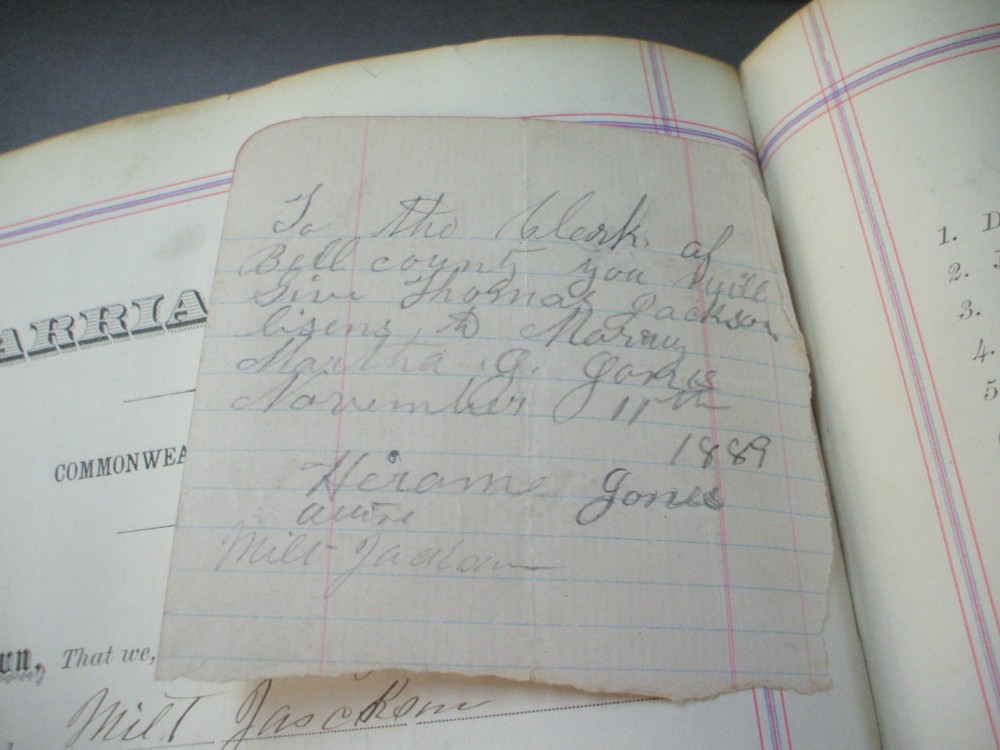 To the Clerk of
Bell county you will
Give Thomas Jackson
lisens to Marry
Martha . J. Jones
November 11th
1889
Hirame Jones
Milt Jackson
ARRIA
COMMONWEA
That we,
Milt Jackson
1. D
2.
3.
4.
5